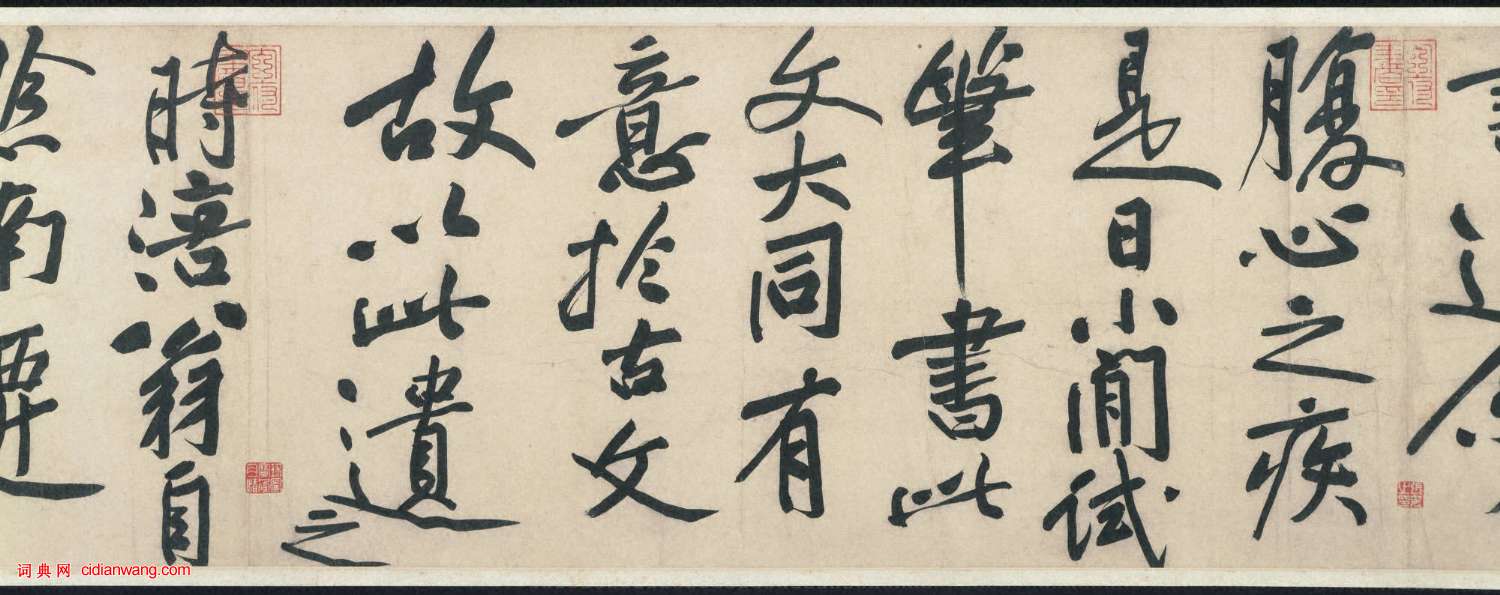 腹心之疾
是日小閒試
筆書此
文大同有
意於古文
故以此遺之
時涪翁自
南遷
词典网 cidianwang.com